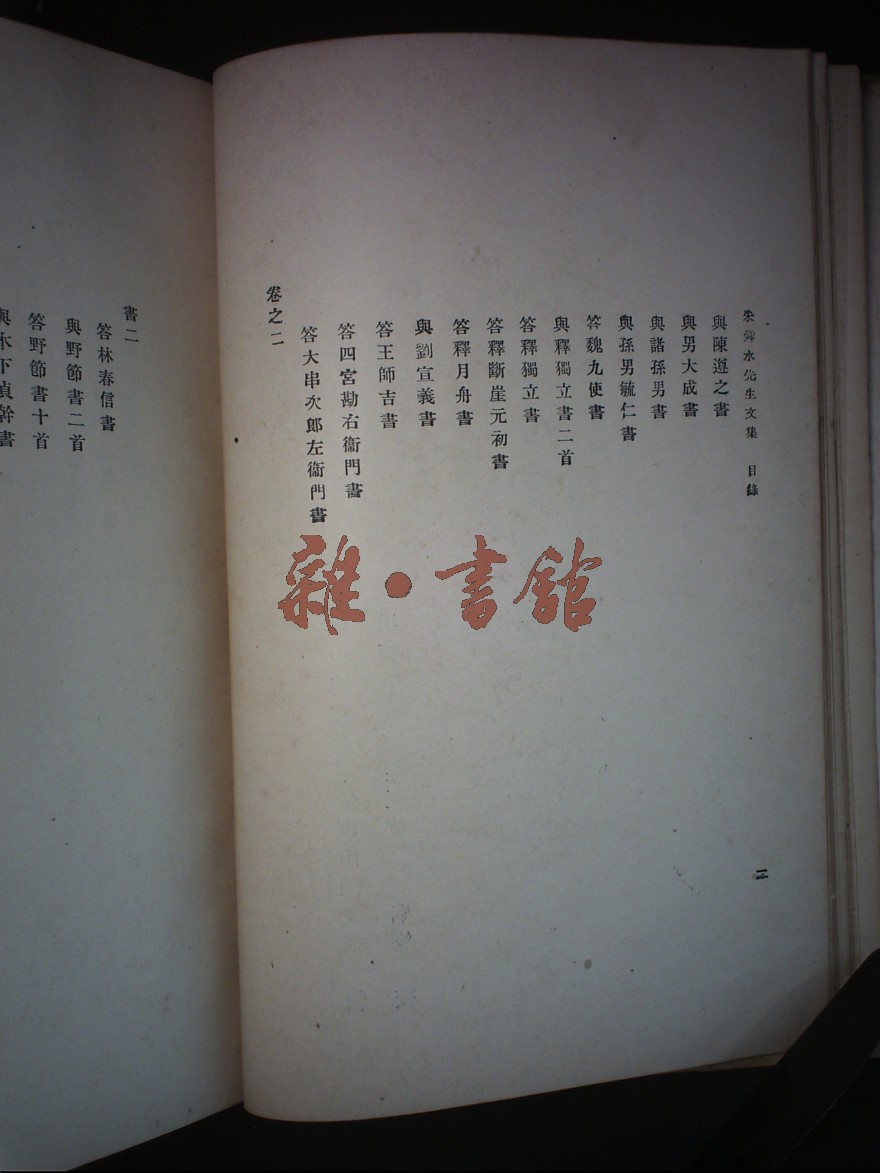 朱舜水先生文集 目錄
與陳遵之書
與男大成書
與諸孫男書
與孫男毓仁書
答魏九使書
與釋獨立書二首
答釋獨立書
答釋斷崖元初書
答釋月舟書
與劉宣義書
答王師吉書
答四宮勘右衞門書
答大串次郎左衞門書
卷之二
二
書二
答林春信書
與野節書二首
答野節書十首
與木下貞幹書
雜·書館